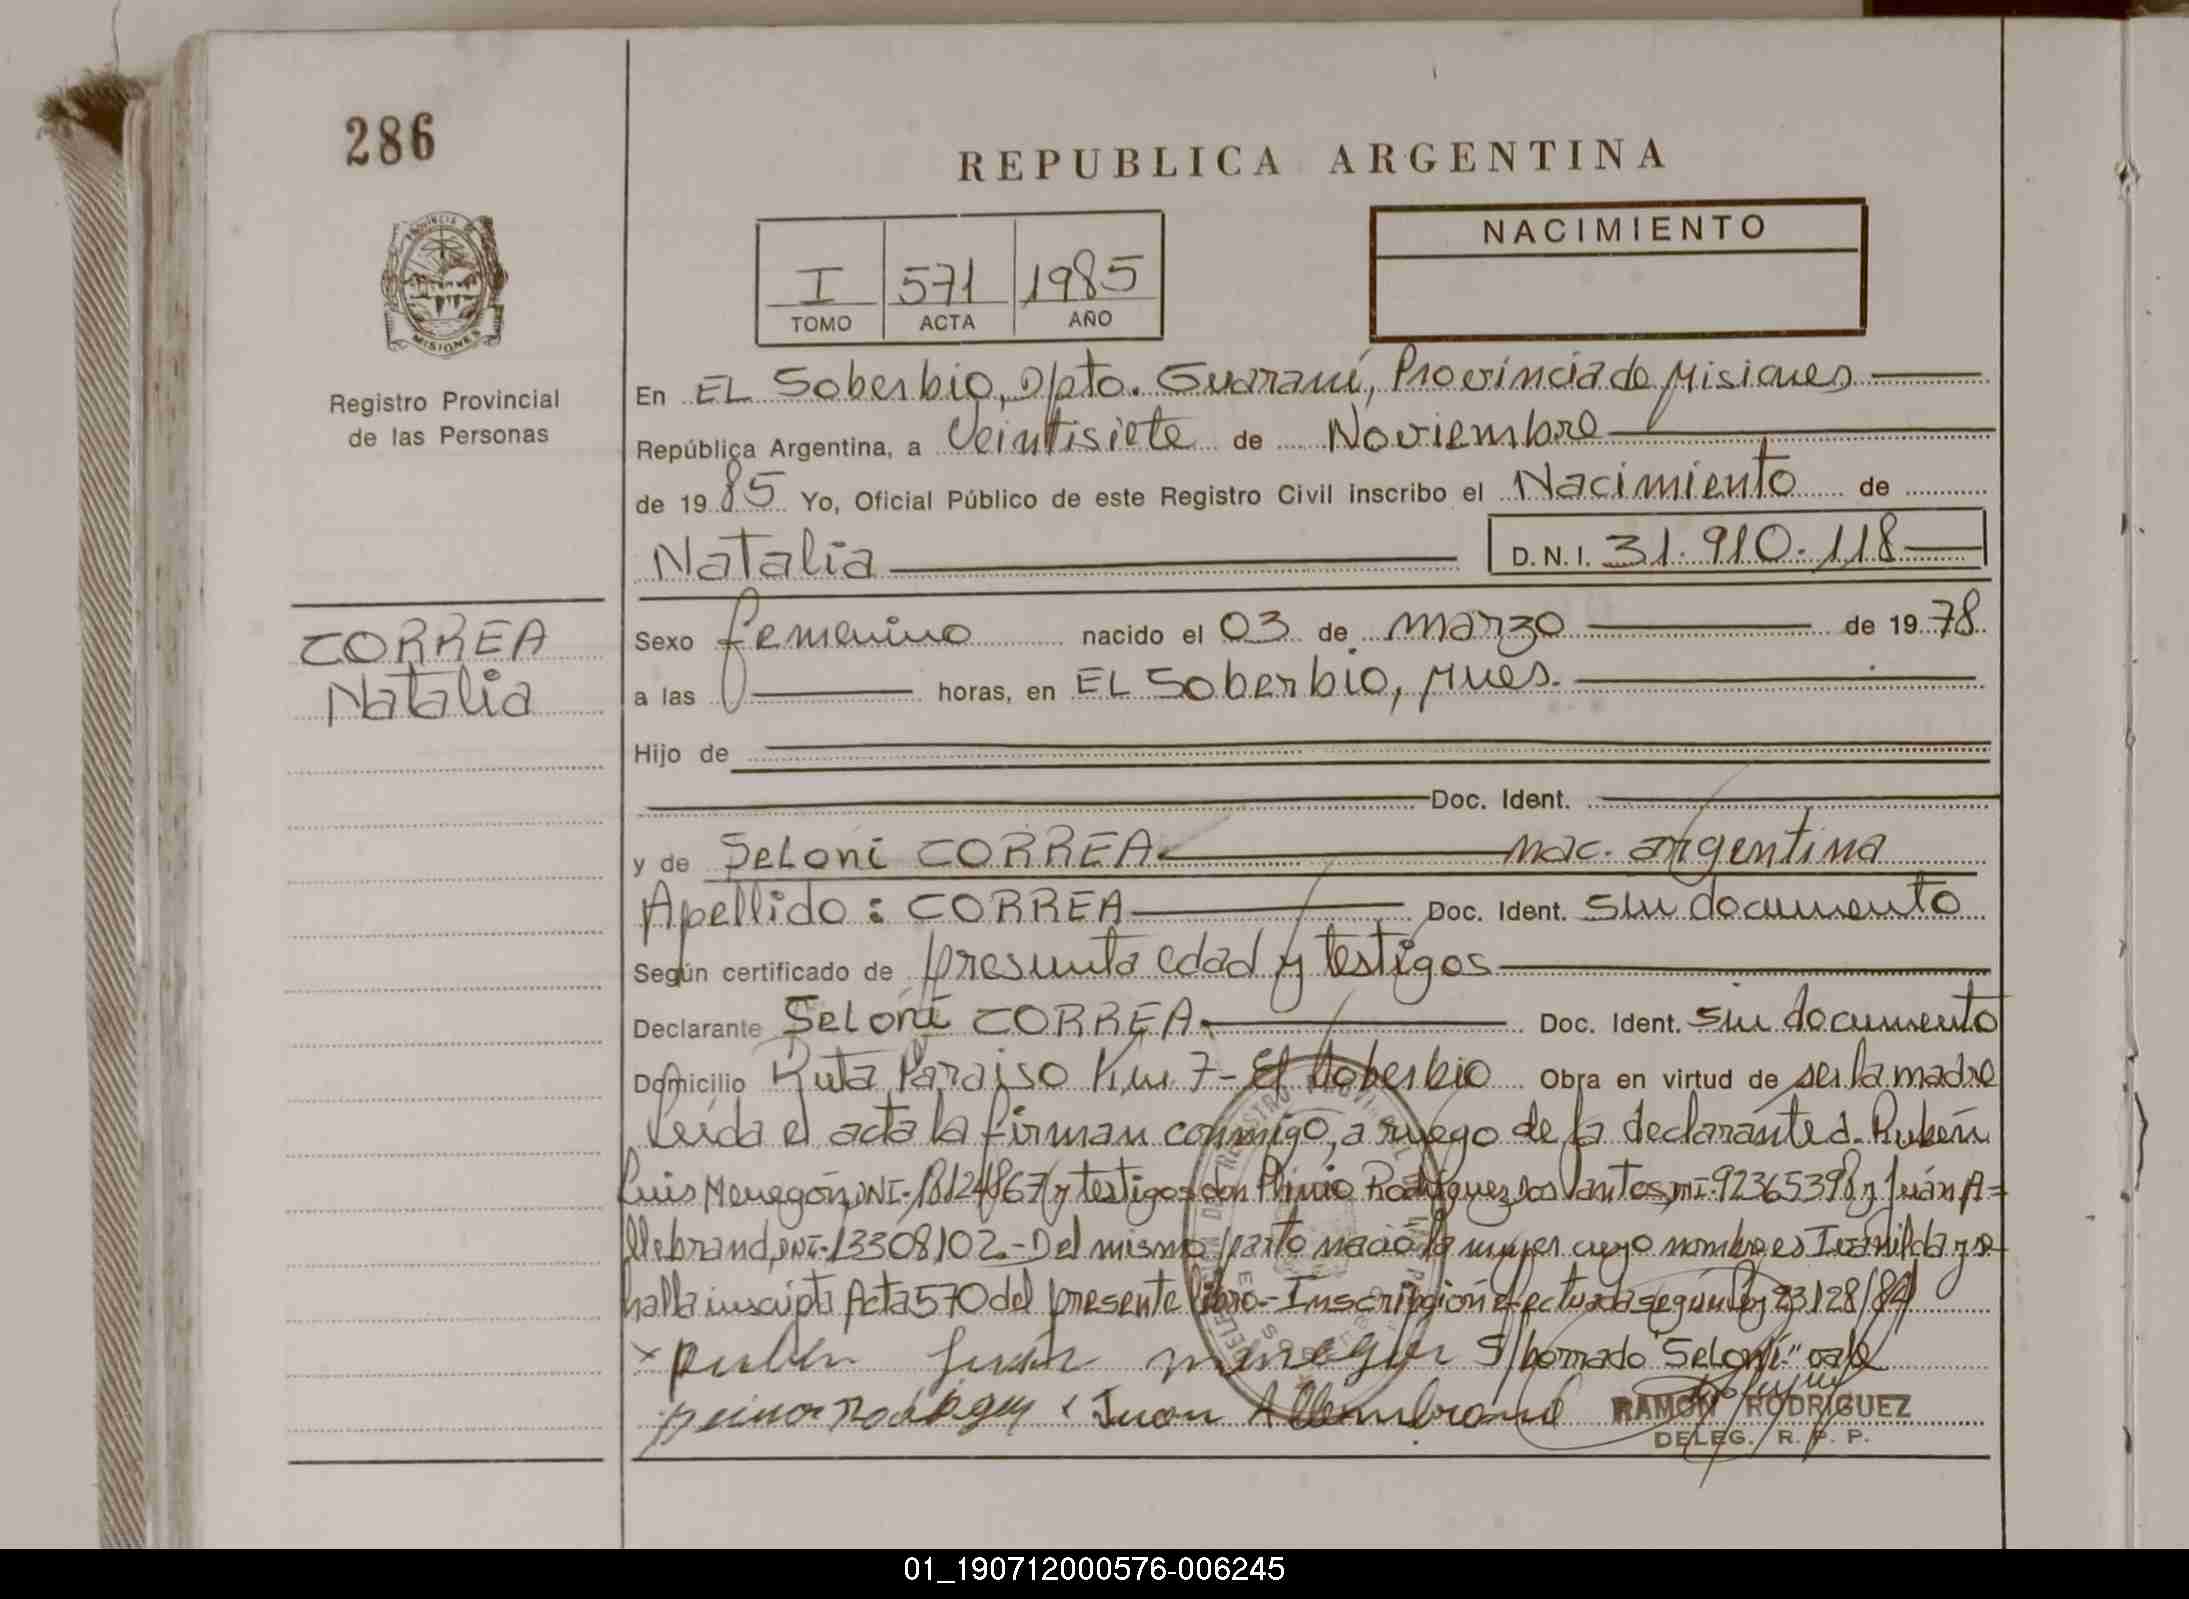 286
REPUBLICA ARGENTINA
NACIMIENTO
I 571 1985
TOMO ACTA AÑO
PROVINCIA DE
MISIONES
Registro Provincial
de las Personas
En EL Soberbio, Dpto. Guaraní, Provincia de Misiones
República Argentina, a Veintisiete de Noviembre
de 1985 Yo, Oficial Público de este Registro Civil inscribo el Nacimiento de
Natalia D.N.I. 31.910.118
CORREA
Natalia
Sexo femenino nacido el 03 de marzo de 1978
a las horas, en EL Soberbio, Mnes.
Hijo de
Doc. Ident.
y de Seloni CORREA nac. argentina
Apellido: CORREA Doc. Ident. sin documento
Según certificado de presunta edad y testigos
Declarante Seloni CORREA Doc. Ident. sin documento
Domicilio Ruta Paraiso Km 7 - El Soberbio Obra en virtud de ser la madre
Leída el acta la firman conmigo, a ruego de la declarante d. Rubén
Luis Menegón, DNI. 18124867 y testigos don Plinio Rodríguez Dos Santos, DNI. 92365398 y Juán A=
llebrand, DNI. 13308102.- Del mismo parto nació la mujer cuyo nombre es Ivanilda y se
halla inscripta Acta 570 del presente libro.- Inscripción efectuada según Ley 23128/84
x Ruben Luis Menegon S/borrado "Seloni" vale
Juan Allembrand RAMON RODRIGUEZ
DELEG. R. P. P.
01_190712000576-006245